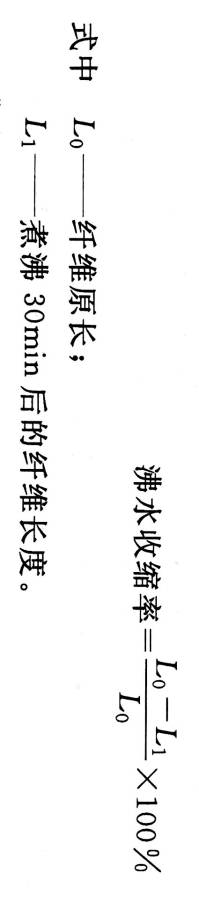 沸水收缩率=\frac{L_0-L_1}{L_0}×100%
式中 L_0——纤维原长；
L_1——煮沸30min后的纤维长度。